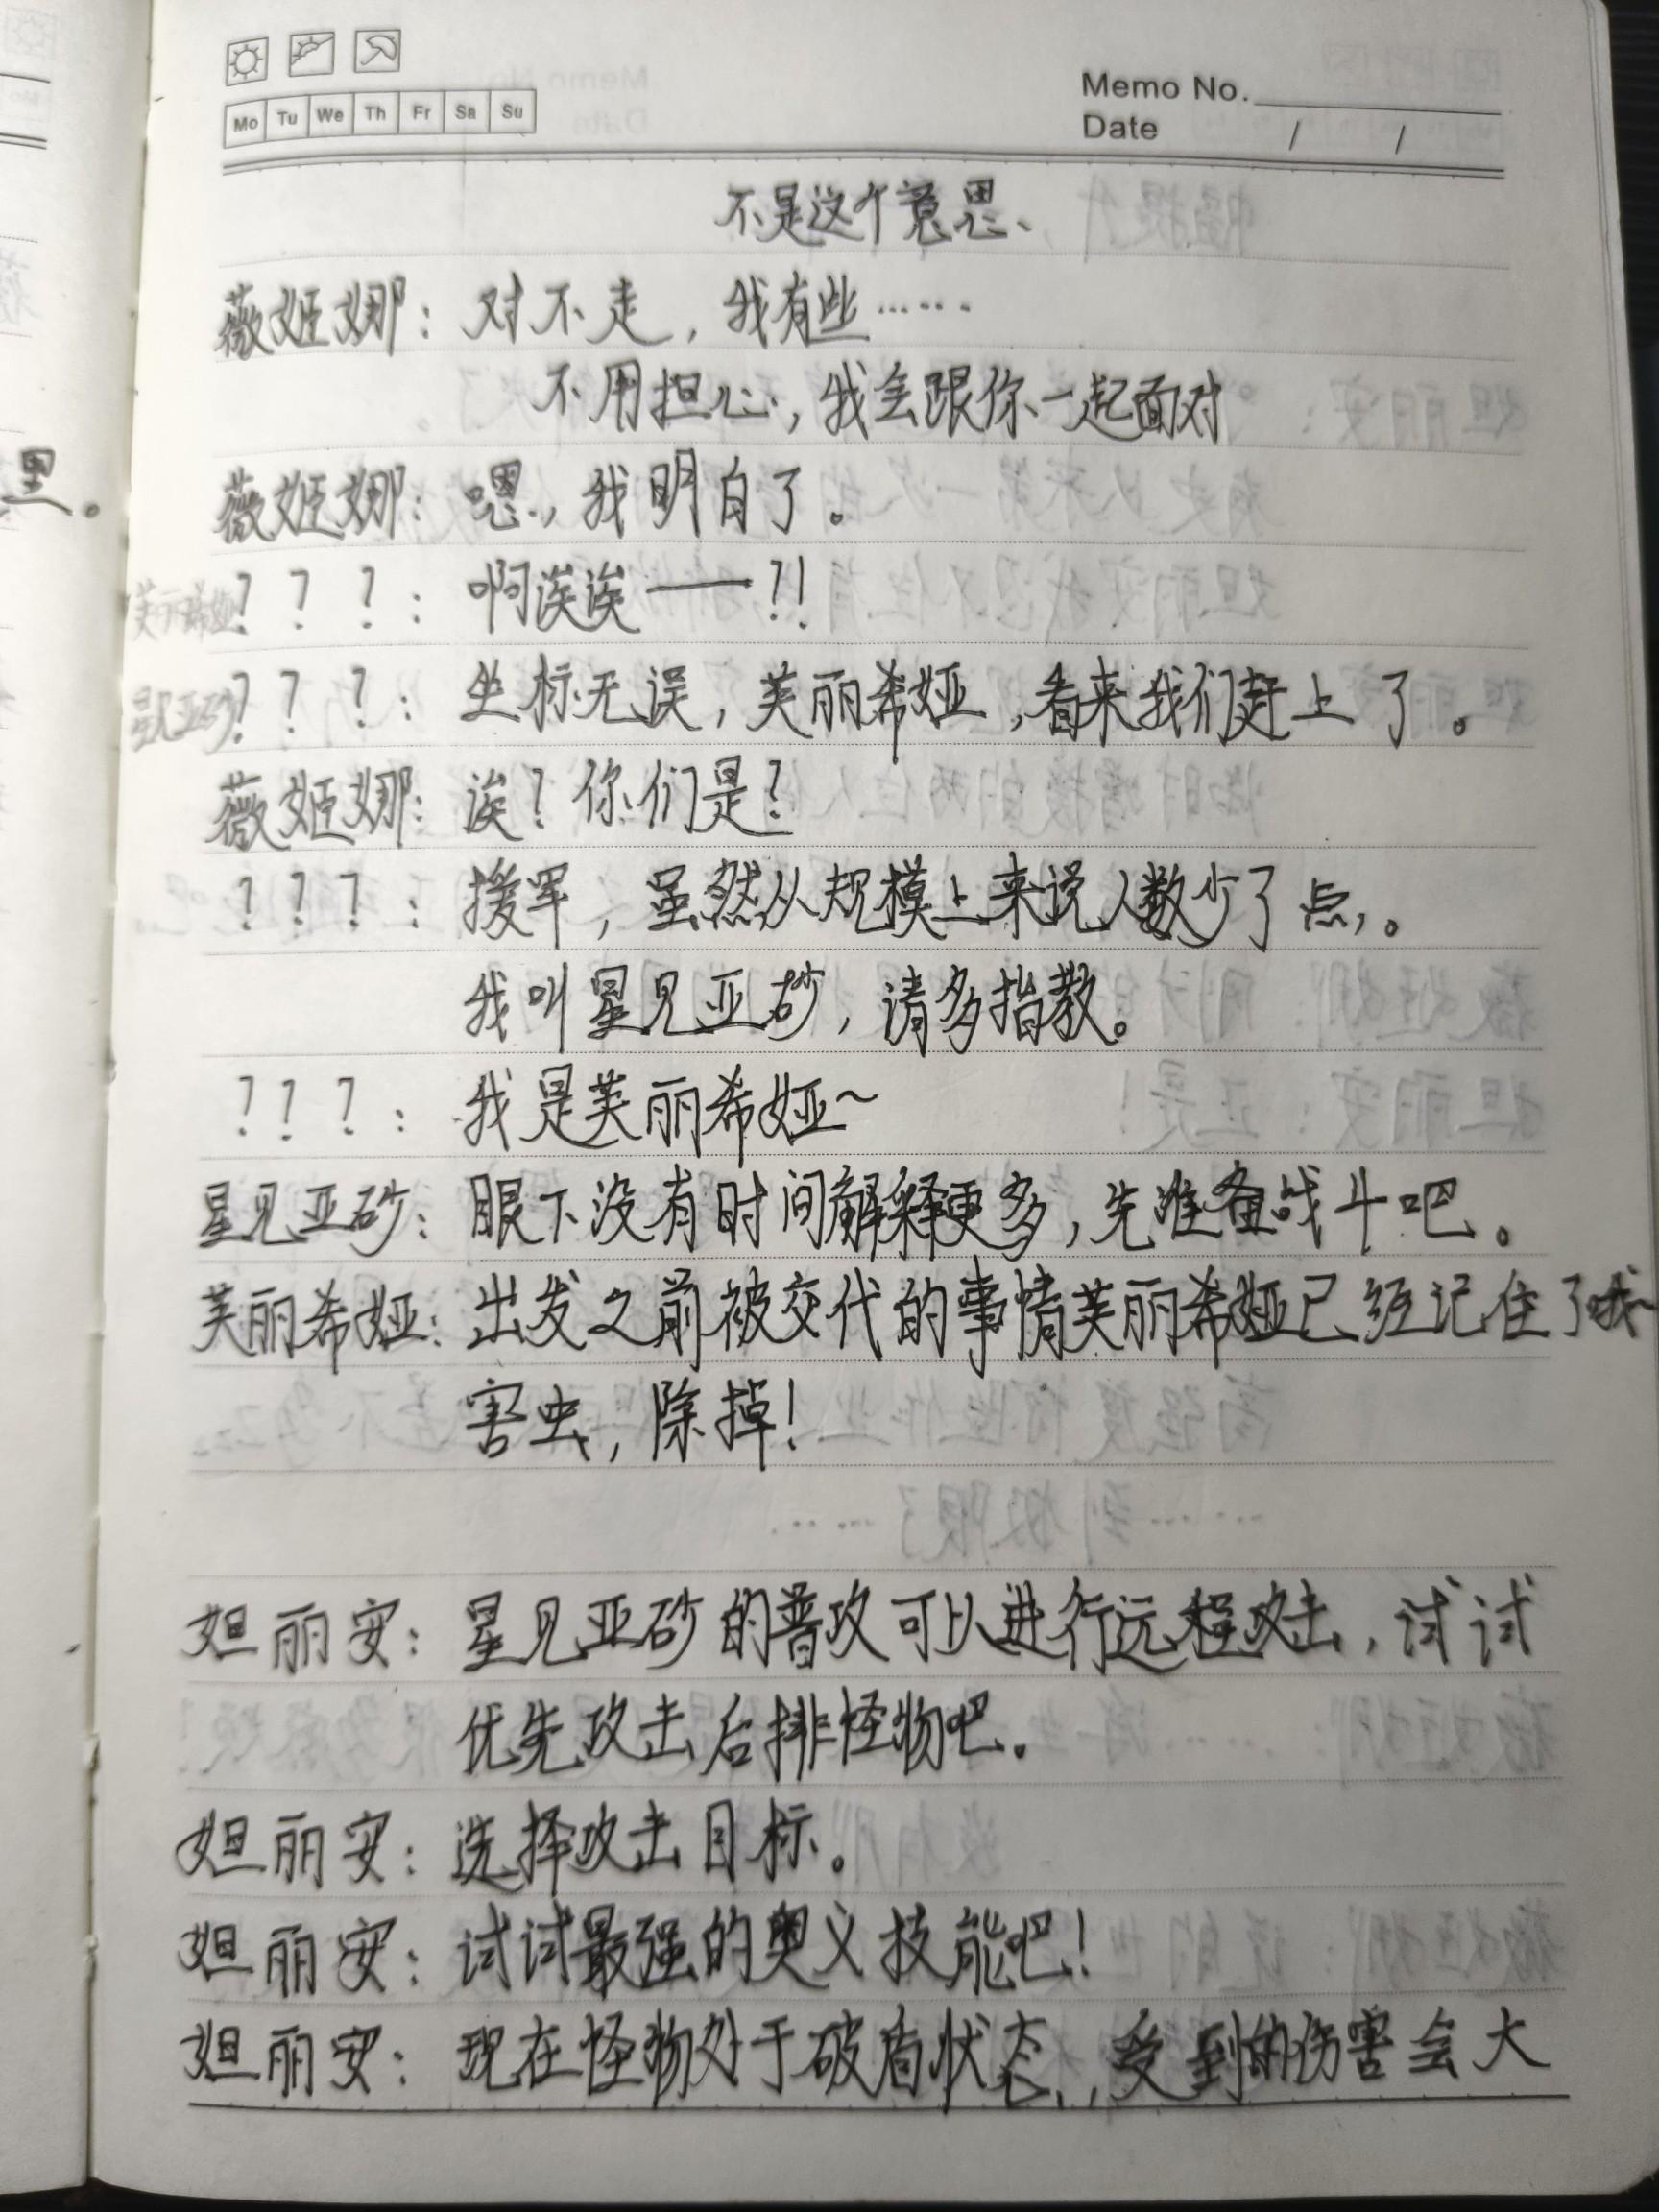 Mo Tu We Th Fr Sa Su
Memo No.
Date / /
不是这个意思、
薇姬娜：对不走，我有些……
不用担心，我会跟你一起面对
里。
薇姬娜：嗯，我明白了。
芙丽希娅？？？：啊诶诶——？！
星见亚砂？？？：坐标无误，芙丽希娅，看来我们赶上了。
薇姬娜：诶？你们是？
？？？：援军，虽然从规模上来说人数少了点，。
我叫星见亚砂，请多指教。
？？？：我是芙丽希娅~
星见亚砂：眼下没有时间解释更多，先准备战斗吧。
芙丽希娅：出发之前被交代的事情芙丽希娅已经记住了哦~
害虫，除掉！
妲丽安：星见亚砂的普攻可以进行远程攻击，试试
优先攻击后排怪物吧。
妲丽安：选择攻击目标。
妲丽安：试试最强的奥义技能吧！
妲丽安：现在怪物处于破盾状态，受到的伤害会大